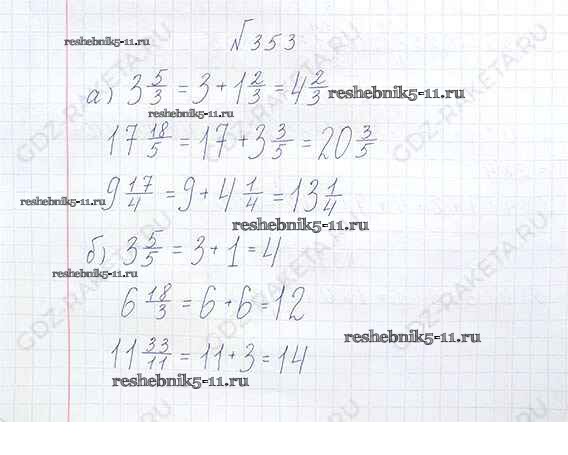 №353
reshebnik5-11.ru
а) 3 5/3 = 3 + 1 2/3 = 4 2/3
reshebnik5-11.ru
reshebnik5-11.ru
17 18/5 = 17 + 3 3/5 = 20 3/5
9 17/4 = 9 + 4 1/4 = 13 1/4
reshebnik5-11.ru
reshebnik5-11.ru
б) 3 5/5 = 3 + 1 = 4
reshebnik5-11.ru
6 18/3 = 6 + 6 = 12
reshebnik5-11.ru
11 33/11 = 11 + 3 = 14
reshebnik5-11.ru
GDZ-RAKETA.RU
GDZ-RAKETA.RU
GDZ-RAKETA.RU
GDZ-RAKETA.RU
GDZ-RAKETA.RU